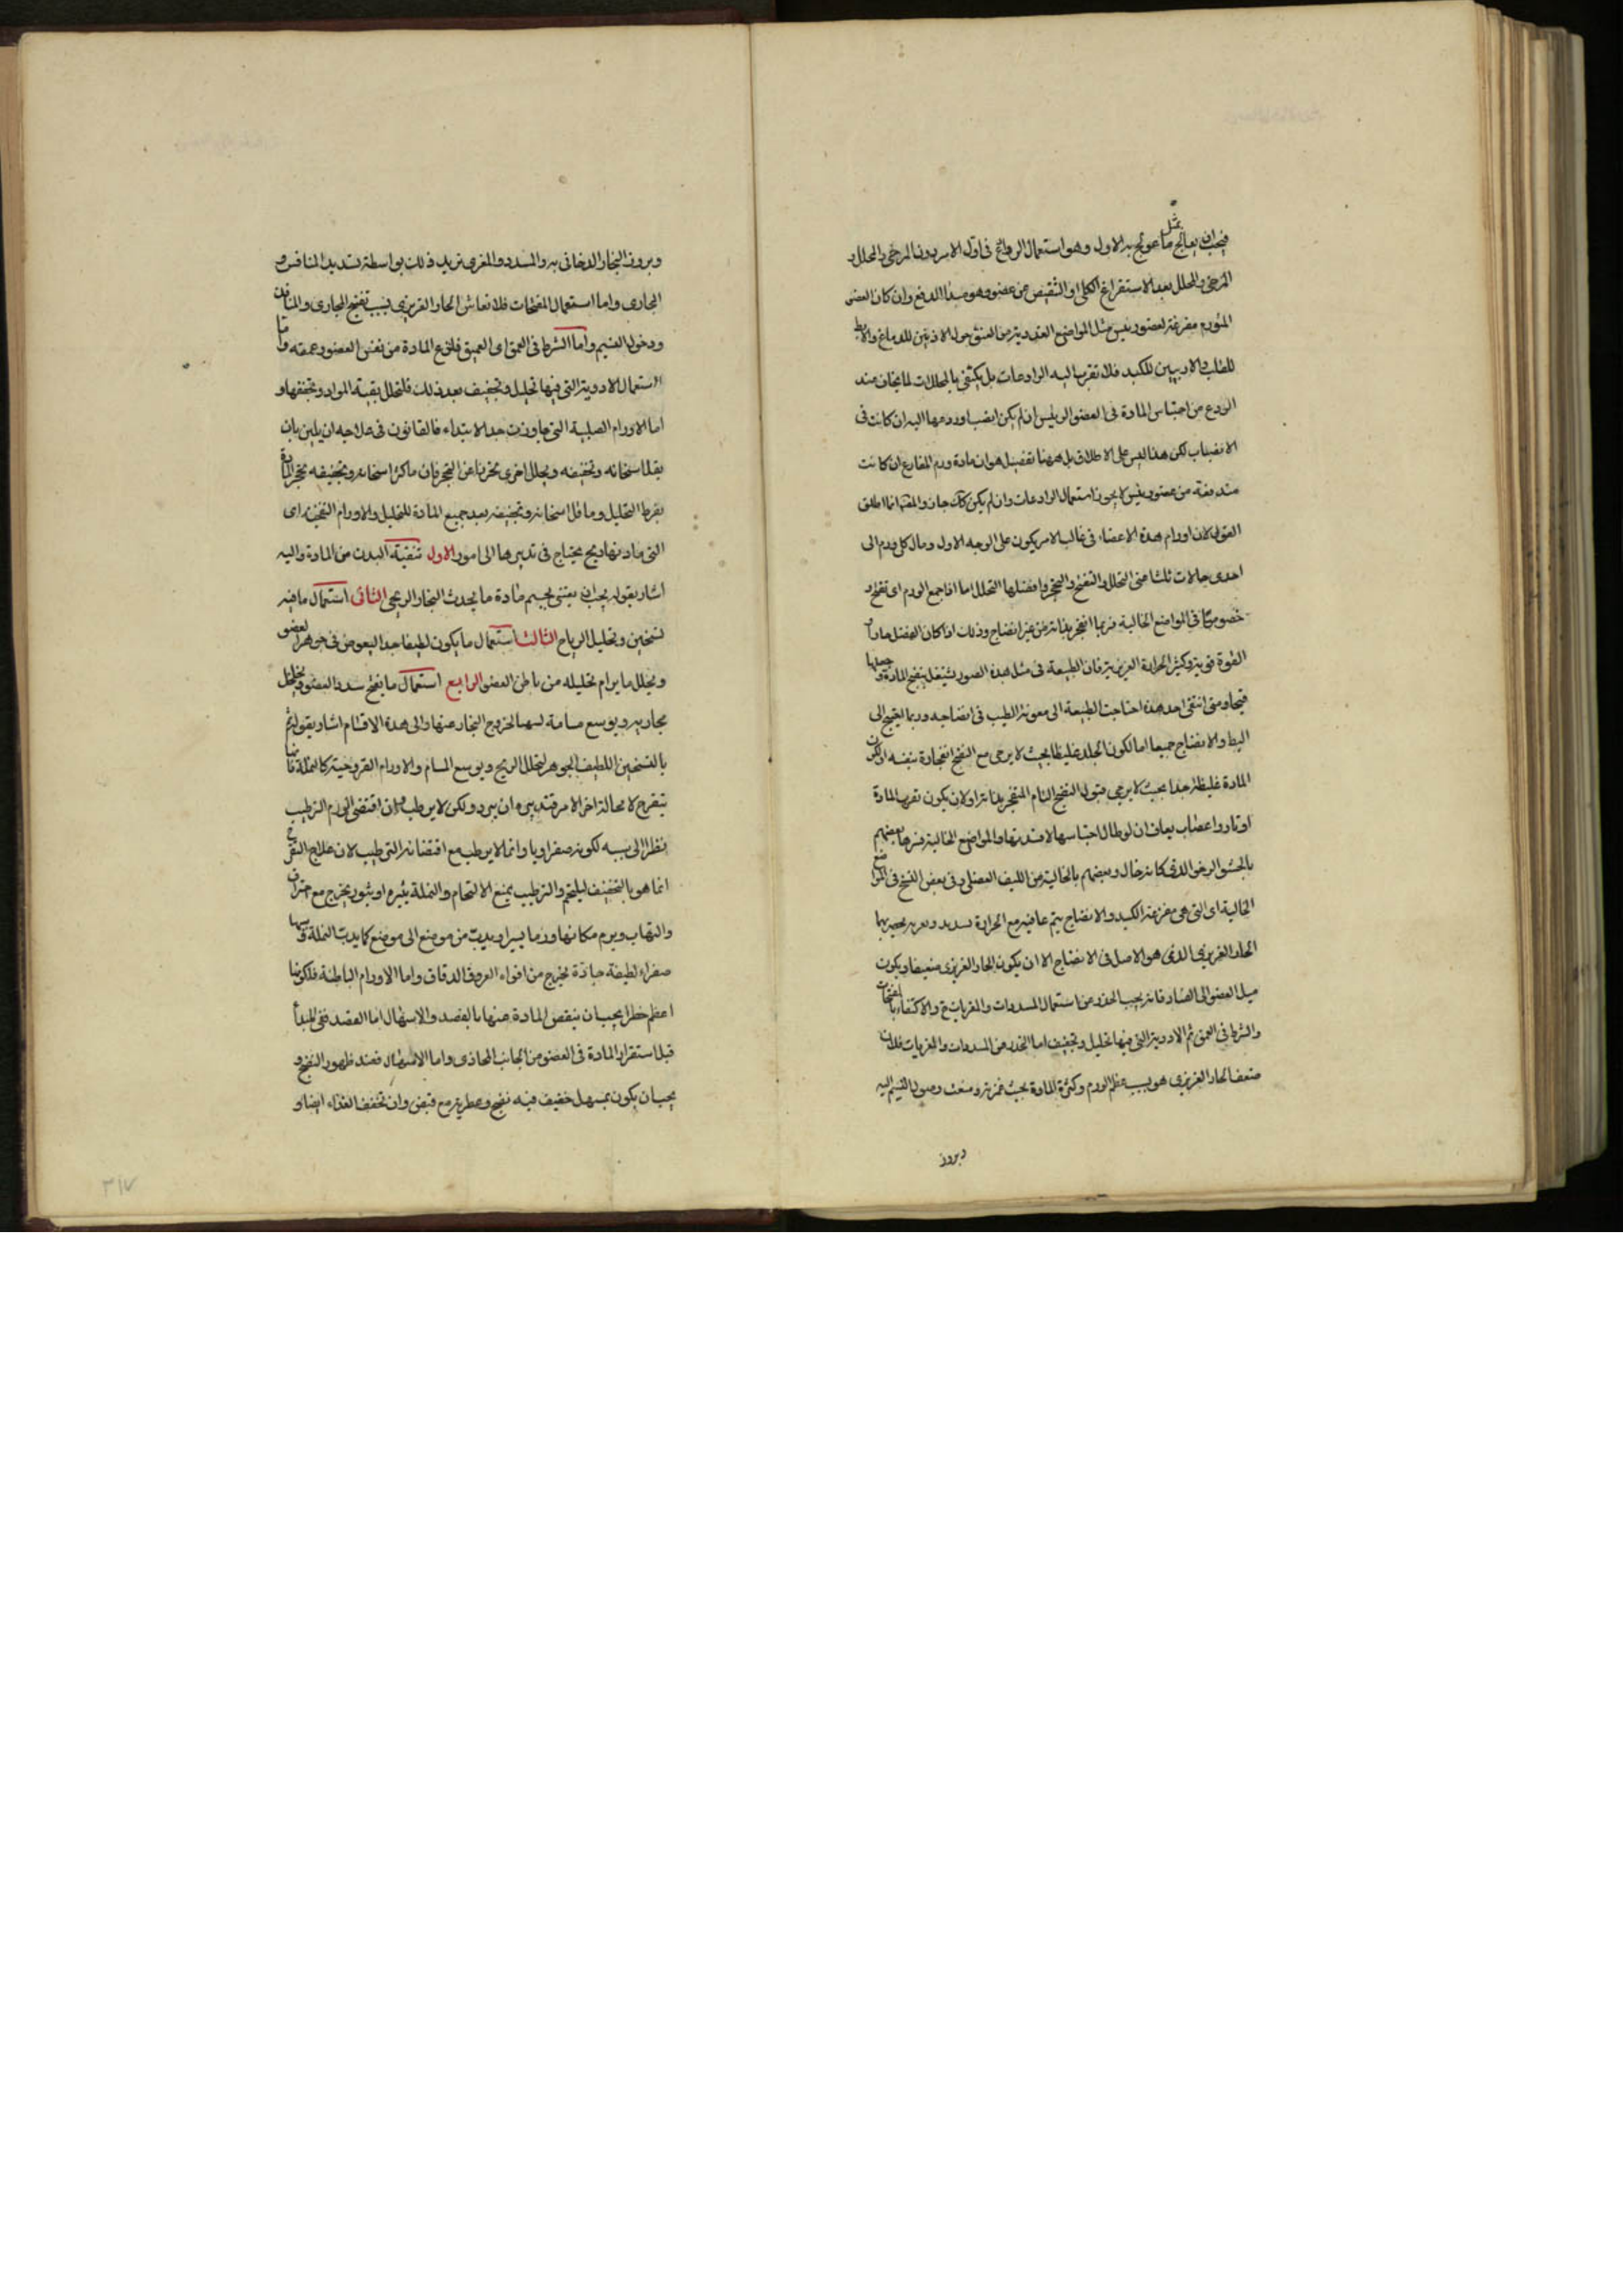 فيجب ان يعالج بمثل ما عولج به الاول وهو استعمال الروادع فى اول الامر دون المرخى والمحلل و
المرخى والمحلل بعد الاستفراغ الكلى او التنقيص من عضو هو مبدأ الدفع وان كان العضو
المتورم مفرغة لعضو رئيس مثل المواضع الغددية من العنق حول الاذنين للدماغ والابط
للقلب والاربيتين للكبد فلا تقرب اليه الرادعات بل يكتفى بالمحللات لما يخاف عند
الردع من احتباس المادة فى العضو الرئيس ان لم يكن انصباب وردعها اليه ان كانت فى
الانصباب لكن هذا ليس على الاطلاق بل ههنا تفصيل هو ان مادة ورم المفارغ ان كانت
مندفعة من عضو رئيس لا يجوز استعمال الرادعات وان لم يكن كك جاز والمص انما اطلق
القول لان اورام هذه الاعضاء فى غالب الامر يكون على الوجه الاول ومآل كل ورم الى
احدى حالات ثلث اعنى التحلل والتقيح والتحجر وافضلها التحلل اما اذا جمع الورم اى تقيح و
خصوصا فى المواضع الخالية فربما انفجر بذاته من غير انضاج وذلك اذا كان
القوة قوية وكثير الحرارة الغريزية فان الطبيعة فى مثل هذه الصور تشتغل بنضج المادة وجعلها
قيحا ومتى انتفى احد هذه احتاجت الطبيعة الى معونة الطبيب فى انضاجه وربما احتيج الى
البط والانضاج جميعا اما لكون الجلد غليظا بحيث لا يرجى مع النضج انفجاره بنفسه او لكون
المادة غليظة جدا بحيث لا يرجى قبول النضج التام المنفجر بذاته او لان يكون بقرب المادة
اوتار واعصاب يخاف ان لو طال احتباسها لافسدتها والمواضع الخالية فسرها بعضهم
بالحشو الرخو الذى كانه خال وبعضهم بالخالية من الليف العضلى وفى بعض النسخ فى المواضع
الخالية اى التى هى مفرغة الكبد والانضاج يتم بما فيه مع الحرارة تسديد وتغرية يحصر بها
الحار الغريزى الذى هو الاصل فى الانضاج الا ان يكون الحار الغريزى ضعيفا ويكون
ميل العضو الى الفساد فانه يجب الحذر من استعمال المسددات والمغريات ح والاكتفاء بالمفتحات
والشرط فى العمق ثم الادوية التى فيها تحليل وتجفيف اما الحذر من المسددات والمغريات فلان
ضعف الحار الغريزى هو بسبب عظم الورم وكثرة المادة بحيث غمرته ومنعت وصول النسيم اليه
وبروز
وبروز البخار الدخانى به والمسدد والمغرى يزيد ذلك بواسطة تسديد المنافس و
المجارى واما استعمال المفتحات فلانعاش الحار الغريزى بسبب تفتح المجارى والمنافذ
ودخول النسيم واما الشرط فى العمق اى العميق فليخرج المادة من نفس العضو وعمقه واما
استعمال الادوية التى فيها تحليل وتجفيف بعد ذلك فلتحلل بقية المواد وتجففها و
اما الاورام الصلبة التى جاوزت حد الابتداء فالقانون فى علاجه ان يلين بان
يقل اسخانه وتجفيفه ويحلل اخرى تحرزا عن التحجر فان ما كثر اسخانه وتجفيفه يحجر المادة
بفرط التحليل وما قل اسخانه وتجفيفه يعد جميع المادة للتحليل والاورام النفخية اى
التى مادتها ريح يحتاج فى تدبيرها الى امور الاول تنقية البدن من المادة واليه
اشار بقوله يجب ان يعتنى بحسم مادة ما يحدث البخار الريحى الثانى استعمال ما فيه
تسخين وتحليل الرياح الثالث استعمال ما يكون لطيفا جدا ليغوص فى جوهر العضو
ويحلل ما يرام تحليله من باطن العضو الرابع استعمال ما يفتح سدد العضو ويخلخل
مجاريه ويوسع مسامه ليسهل خروج البخار عنها والى هذه الاقسام اشار بقوله ثم
بالتسخين اللطيف الجوهر لتحلل الريح ويوسع المسام والاورام القروحية كالنملة فانها
يتقرح لا محالة اخر الامر فتدبيره ان يبرد ولكن لا يرطب وان اقتضى الورم الترطيب
نظرا الى سببه لكونه صفراويا وانما لا يرطب مع اقتضائه الترطيب لان علاج القرح
انما هو بالتجفيف ليلتحم والترطيب يمنع الالتحام والنملة بثرة او بثور يخرج مع احتراق
والتهاب ويرم مكانها ورما يسيرا ويدب من موضع الى موضع كما يدب النملة وسببها
صفراء لطيفة حادة يخرج من افواه العروق الدقاق واما الاورام الباطنة فلكونها
اعظم خطرا يجب ان ينقص المادة عنها بالفصد والاسهال اما الفصد ففى المبدأ
قبل استقرار المادة فى العضو من الجانب المحاذى واما الاسهال فعند ظهور النضج و
يجب ان يكون بمسهل خفيف فيه نضج وعطرية مع قبض وان تخفف الغذاء ايضا و
٣١٧